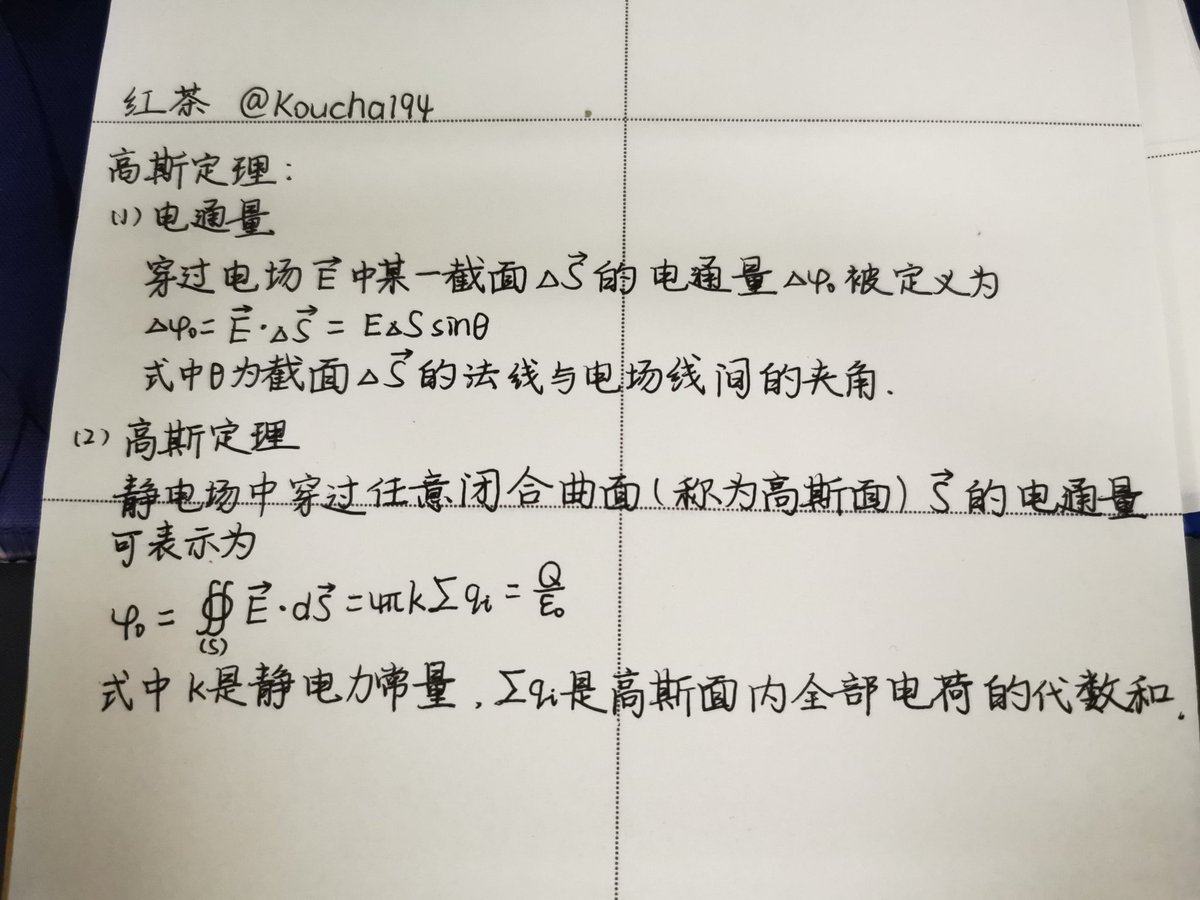 红茶 @Koucha194
高斯定理:
(1) 电通量
穿过电场 E⃗ 中某一截面 ΔS⃗ 的电通量 Δφ₀ 被定义为
Δφ₀ = E⃗ · ΔS⃗ = EΔS sinθ
式中θ为截面 ΔS⃗ 的法线与电场线间的夹角.
(2) 高斯定理
静电场中穿过任意闭合曲面(称为高斯面) S⃗ 的电通量
可表示为
φ₀ = ∯(S) E⃗ · dS⃗ = 4πk Σ qᵢ = Q/ε₀
式中 k是静电力常量, Σqᵢ是高斯面内全部电荷的代数和.